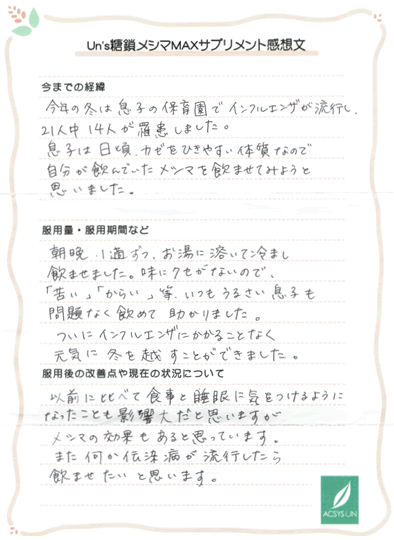 Un's糖鎖メシマMAXサプリメント感想文
今までの経緯
今年の冬は息子の保育園でインフルエンザが流行し、
21人中14人が罹患しました。
息子は日頃、カゼをひきやすい体質なので
自分が飲んでいたメシマを飲ませてみようと
思いました。
服用量・服用期間など
朝晩、1包ずつ、お湯に溶いて冷まし
飲ませました。味にクセがないので、
「苦い」「からい」等、いつもうるさい息子も
問題なく飲めて助かりました。
ついにインフルエンザにかかることなく
元気に冬を越すことができました。
服用後の改善点や現在の状況について
以前にくらべて食事と睡眠に気をつけるように
なったことも影響大だと思いますが
メシマの効果もあると思っています。
また何か伝染病が流行したら
飲ませたいと思います。
ACSYSUN